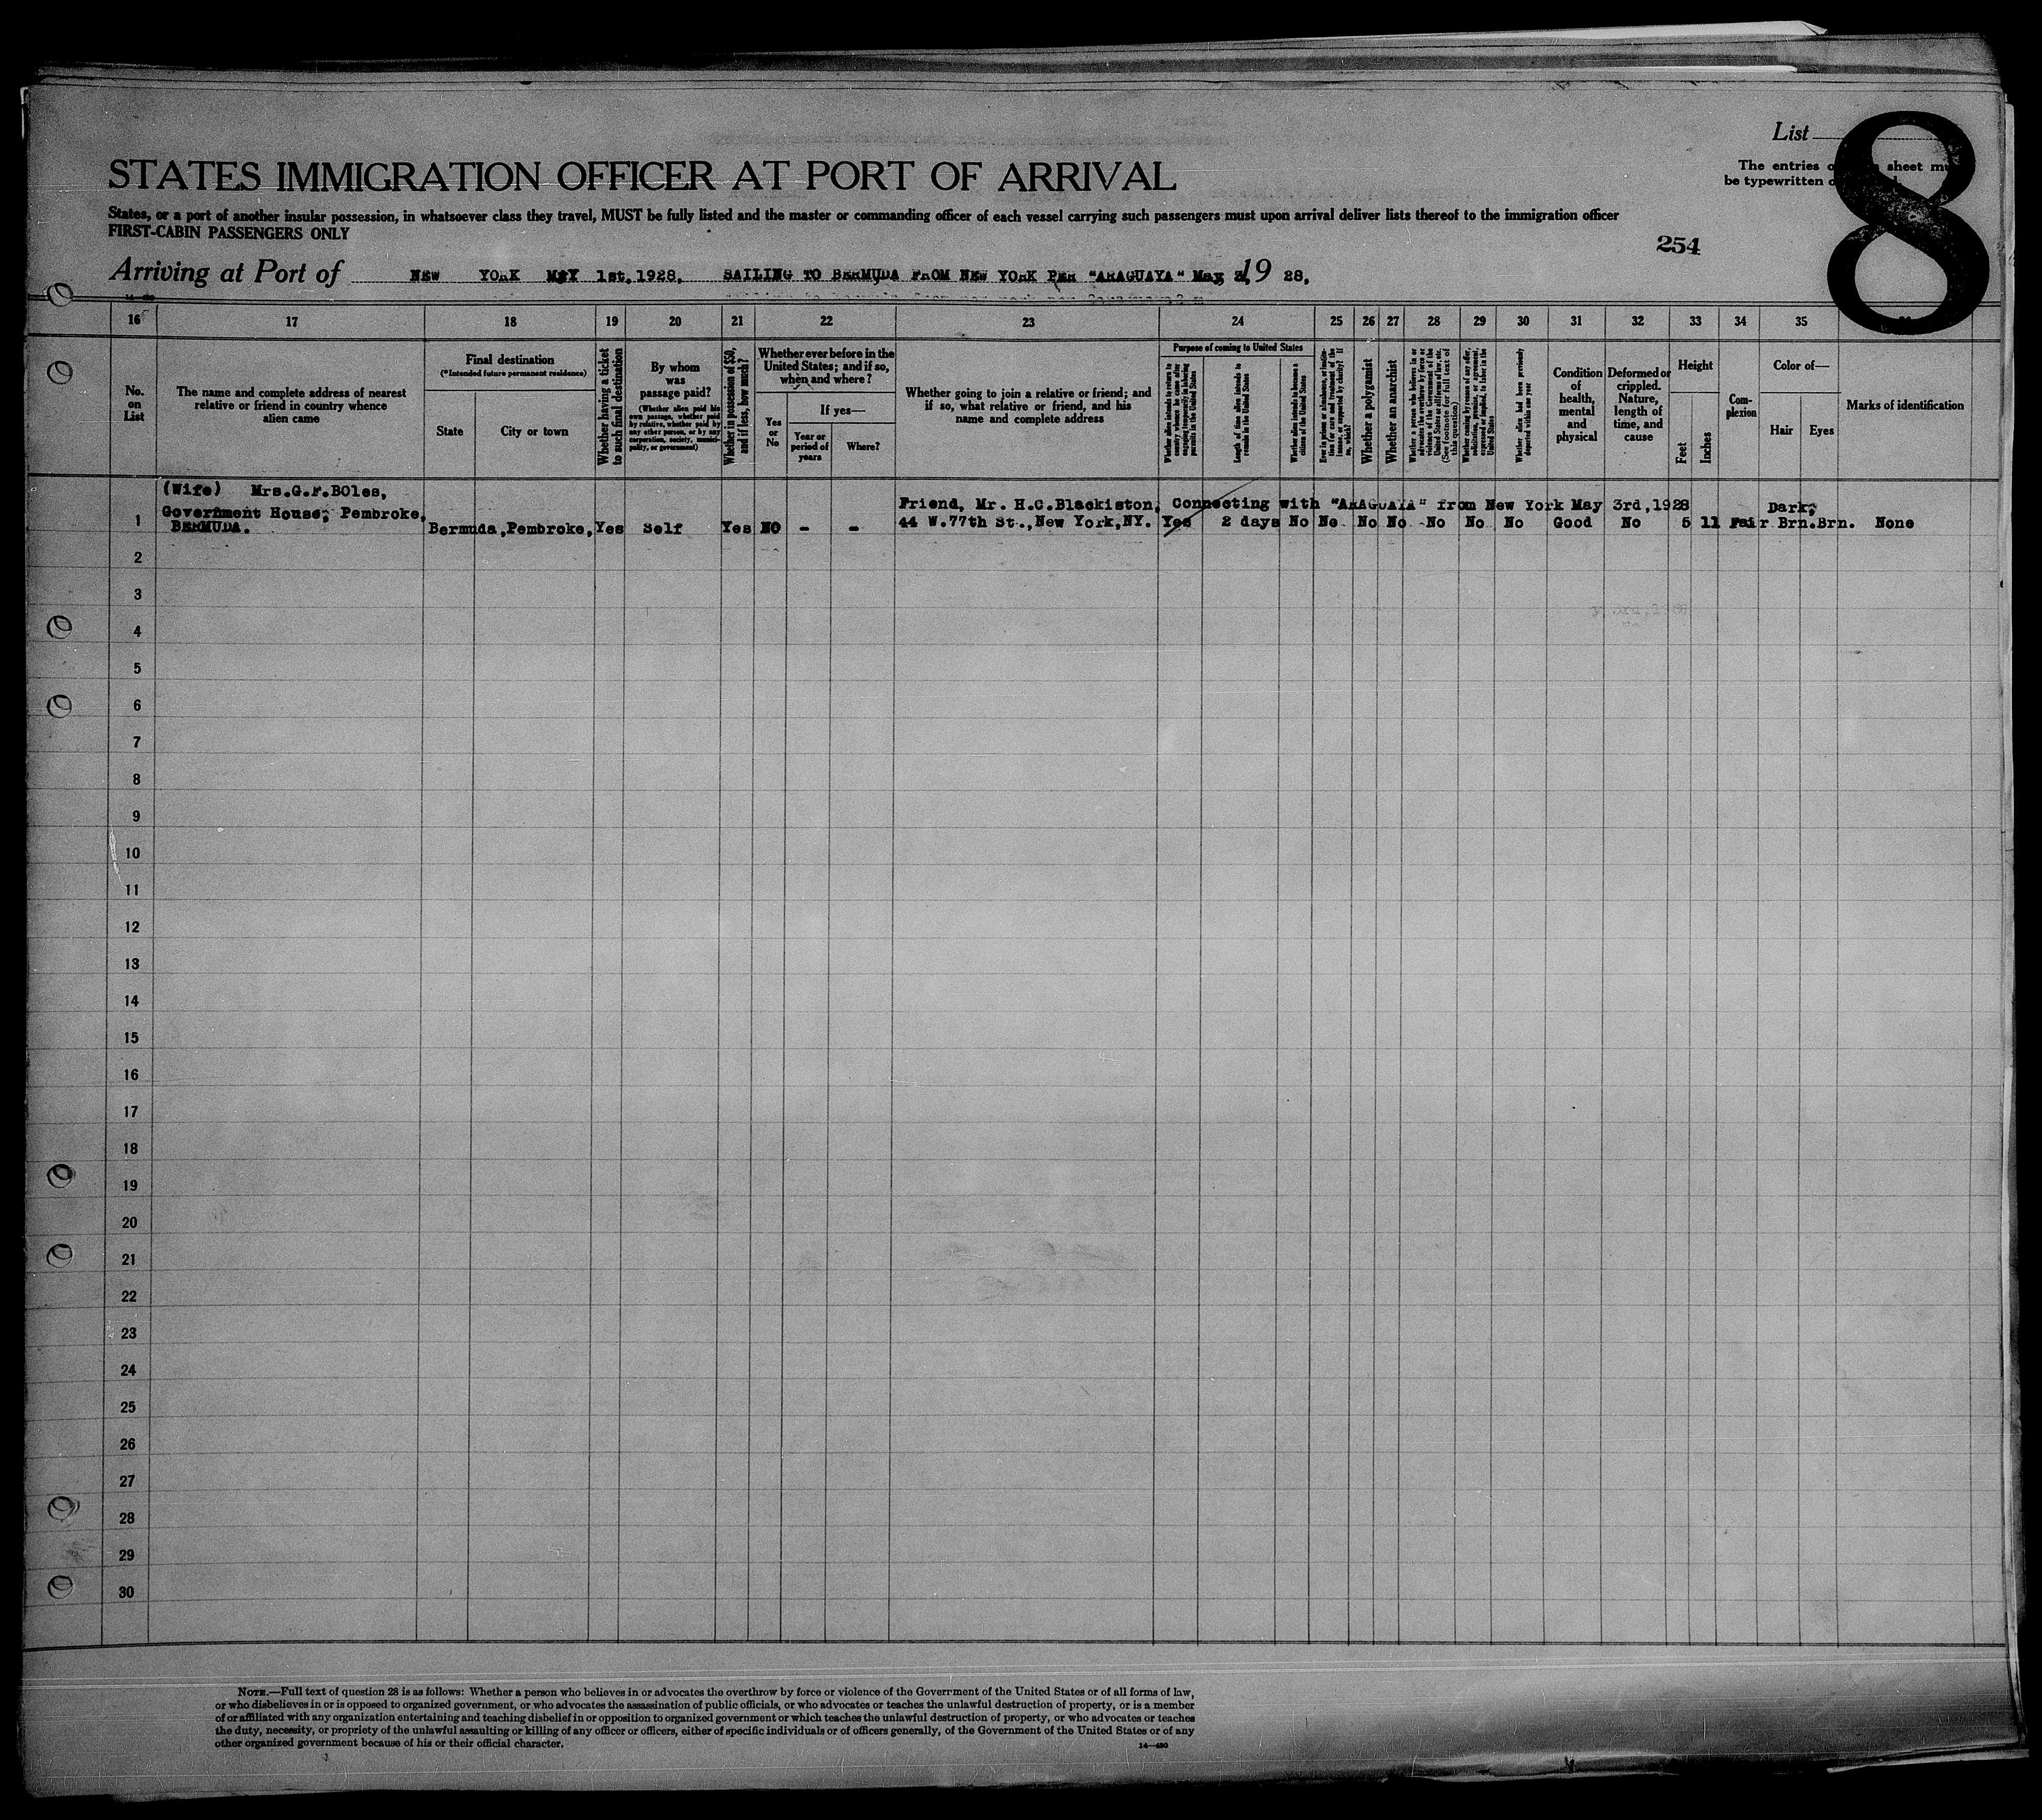 List
8
The entries o sheet mu
be typewritten o
STATES IMMIGRATION OFFICER AT PORT OF ARRIVAL
States, or a port of another insular possession, in whatsoever class they travel, MUST be fully listed and the master or commanding officer of each vessel carrying such passengers must upon arrival deliver lists thereof to the immigration officer
FIRST-CABIN PASSENGERS ONLY
254
Arriving at Port of NEW YORK MAY 1st,1928. SAILING TO BERMUDA FROM NEW YORK PER "ARAGUAYA" May, 3, 19 28.
16 17 18 19 20 21 22 23 24 25 26 27 28 29 30 31 32 33 34 35
No. on List
The name and complete address of nearest relative or friend in country whence alien came
Final destination
(*Intended future permanent residence)
State
City or town
Whether having a ticket to such final destination
By whom was passage paid?
(Whether alien paid his own passage, whether paid by relative, whether paid by any other person, or by any corporation, society, municipality, or government)
Whether in possession of $50, and if less, how much?
Whether ever before in the United States; and if so, when and where?
Yes or No
If yes—
Year or period of years
Where?
Whether going to join a relative or friend; and if so, what relative or friend, and his name and complete address
Purpose of coming to United States
Whether alien intends to return to country whence he came after engaging temporarily in laboring pursuits in the United States
Length of time alien intends to remain in the United States
Whether alien intends to become a citizen of the United States
Ever in prison or almshouse, or institution for care and treatment of the insane, or supported by charity? If so, which?
Whether a polygamist
Whether an anarchist
Whether a person who believes in or advocates the overthrow by force or violence of the Government of the United States or all forms of law, etc. (See footnote for full text of this question)
Whether coming by reason of any offer, solicitation, promise, or agreement, expressed or implied, to labor in the United States
Whether alien had been previously deported within one year
Condition of health, mental and physical
Deformed or crippled. Nature, length of time, and cause
Height
Feet
Inches
Complexion
Color of—
Hair
Eyes
Marks of identification
(Wife) Mrs.G.F.BOles,
Government House, Pembroke,
BERMUDA.
Friend, Mr. H.C.Blackiston, Connecting with "ARAGUAYA" from New York May 3rd,1928 Dark;
1 Bermuda,Pembroke, Yes Self Yes NO - - 44 W.77th St.,New York,NY. Yes 2 days No No No No No No No Good No 5 11 Fair Brn.Brn. None
2
3
4
5
6
7
8
9
10
11
12
13
14
15
16
17
18
19
20
21
22
23
24
25
26
27
28
29
30
NOTE.—Full text of question 28 is as follows: Whether a person who believes in or advocates the overthrow by force or violence of the Government of the United States or of all forms of law,
or who disbelieves in or is opposed to organized government, or who advocates the assassination of public officials, or who advocates or teaches the unlawful destruction of property, or is a member
of or affiliated with any organization entertaining and teaching disbelief in or opposition to organized government or which teaches the unlawful destruction of property, or who advocates or teaches
the duty, necessity, or propriety of the unlawful assaulting or killing of any officer or officers, either of specific individuals or of officers generally, of the Government of the United States or of any
other organized government because of his or their official character.
14—430